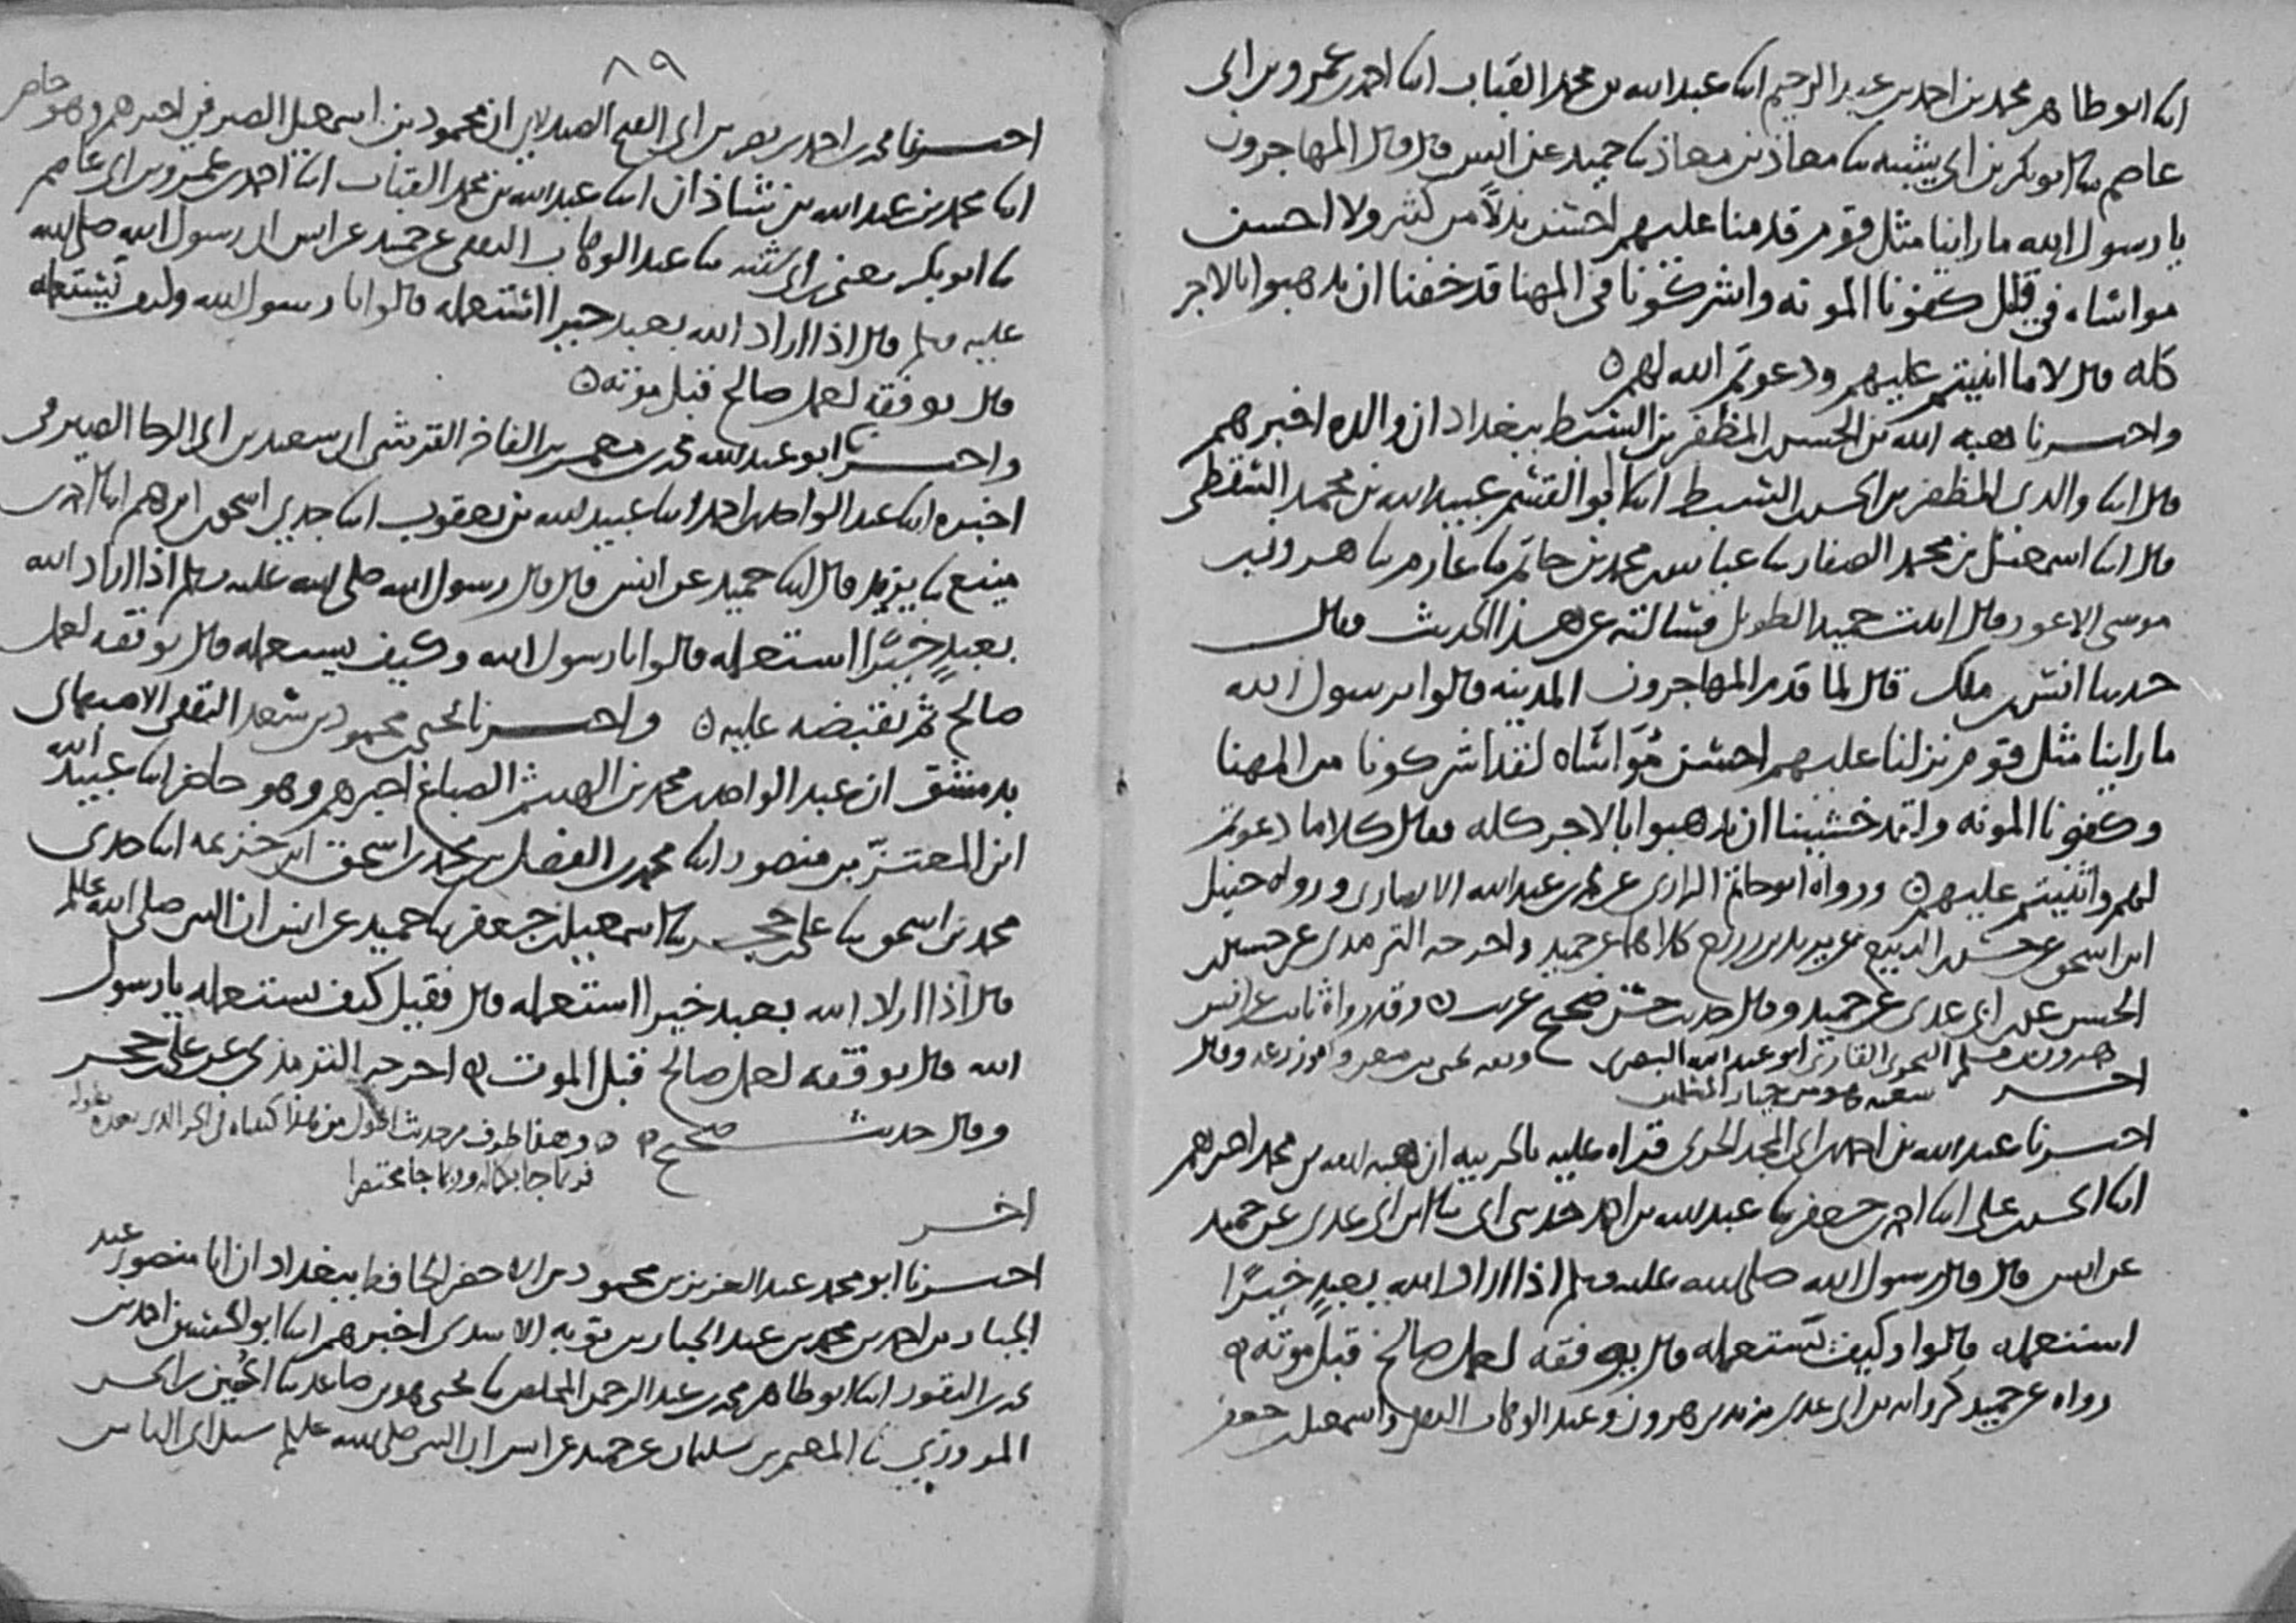 انا ابو طاهر محمد بن احمد بن عبد الرحيم انا عبد الله بن محمد القباب انا احمد بن عمرو بن ابي
عاصم نا ابو بكر بن ابي شيبه نا معاذ بن معاذ نا حميد عن انس قال قال المهاجرون
يا رسول الله ما راينا مثل قوم قدمنا عليهم احسن بذلاً من كثير ولا احسن
مواساه في قليل كفونا المونه واشركونا في المهنا قد خفنا ان يذهبوا بالاجر
كله قال لا ما اثنيتم عليهم ودعوتم الله لهم ه
واخبرنا هبه الله بن الحسن المظفر بن السبط ببغداد ان والده اخبرهم
قال انا والدي المظفر بن الحسن السبط انا ابو القسم عبيد الله بن محمد السقطي
قال انا اسمعيل بن محمد الصفار نا عباس بن محمد بن حاتم نا عارم نا هرون بن
موسى الاعور قال اتيت حميد الطويل فسالته عن هذا الحديث فقال
حدثنا انس بن ملك قال لما قدم المهاجرون المدينه قالوا يرسول الله
ما راينا مثل قوم نزلنا عليهم احسن مُوَاسَاه لقد اشركونا من المهنا
وكفونا المونه ولقد خشينا ان يذهبوا بالاجر كله فقال كلا ما دعوتم
لهم واثنيتم عليهم ه ورواه ابو حاتم الرازي عن محمد بن عبد الله الانصاري ورواه حنبل
ابن اسحق عن الربيع عن يزيد بن زريع كلاهما عن حميد واخرجه الترمذي عن حسين
الحسن عن ابن ابي عدي عن حميد وقال حديث حسن صحيح غريب ه وقد رواه ثابت عن انس
هرون بن موسى النحوي القاري ابو عبد الله البصري وثقه يحيى بن معين وابو زرعه وقال
اخر شعبه هو من خيار المسلمين
اخبرنا عبد الله بن احمد بن ابي المجد الحربي قراه عليه بالحربيه ان هبه الله بن محمد اخبرهم
انا الحسن بن علي انا احمد بن جعفر نا عبد الله بن احمد حدثني ابي نا ابن ابي عدي عن حميد
عن انس قال قال رسول الله صلى الله عليه وسلم اذا اراد الله بعبدٍ خيرًا
استعمله قالوا وكيف يَستعمله قال يوفقه لعمل صالح قبل موته ه
رواه عن حميد كروايه بن ابي عدي يزيد بن هرون وعبد الوهاب الثقفي واسمعيل بن جعفر
٨٩
اخبرنا محمد بن احمد بن نصر بن ابي الفتح الصيدلاني ان محمود بن اسمعيل الصيرفي اخبرهم وهو حاضر
انا محمد بن عبد الله بن شاذان انا عبد الله بن محمد القباب انا احمد بن عمرو بن ابي عاصم
نا ابو بكر يعني بن ابي شيبه نا عبد الوهاب الثقفي عن حميد عن انس ان رسول الله صلى الله
عليه وسلم قال اذا اراد الله بعبد خيرا استعمله قالوا يا رسول الله وكيف يَستعمله
قال يوفقه لعمل صالح قبل موته ه
واخبرنا ابو عبد الله محمد بن معمر بن الفاخر القرشي ان سعيد بن ابي الرجا الصيرفي
اخبره انا عبد الواحد بن احمد انا عبيد الله بن يعقوب انا جدي اسحق بن ابرهيم انا احمد بن
منيع نا يزيد قال انا حميد عن انس قال قال رسول الله صلى الله عليه وسلم اذا اراد الله
بعبدٍ خيرًا استعمله قالوا يا رسول الله وكيف يستعمله قال يوفقه لعمل
صالح ثم يقبضه عليه ه واخبرنا يحيى بن محمود بن سعد الثقفي الاصبهاني
بدمشق ان عبد الواحد بن محمد بن الهيثم الصباغ اخبرهم وهو حاضر انا عبيد الله
ابن المعتزّ بن منصور انا محمد بن الفضل بن محمد بن اسحق ابن خزيمه انا جدي
محمد بن اسحق نا علي بن حجر نا اسمعيل بن جعفر نا حميد عن انس ان النبي صلى الله عليه وسلم
قال اذا اراد الله بعبد خيرا استعمله قال فقيل كيف يستعمله يا رسول
الله قال يوفقه لعمل صالح قبل الموت ه اخرجه الترمذي عن علي بن حجر
وقال حديث صحيح ه ه وهذا طرف من حديث اطول من هذا كتبناه في الجز الذي بعده بطوله
فربما جا بكماله وربما جا مختصرا
اخر
اخبرنا ابو محمد عبد العزيز بن محمود بن الاخضر الحافظ ببغداد ان ابا منصور عبد
الجبار بن احمد بن محمد بن عبد الجبار بن توبه الاسدي اخبرهم انا ابو الحسين احمد بن
محمد بن النقور انا ابو طاهر محمد بن عبد الرحمن المخلص نا يحيى هو بن صاعد نا الحسين بن الحسن
المروزي نا المعتمر بن سليمان عن حميد عن انس ان النبي صلى الله عليه وسلم سئل اي الناس